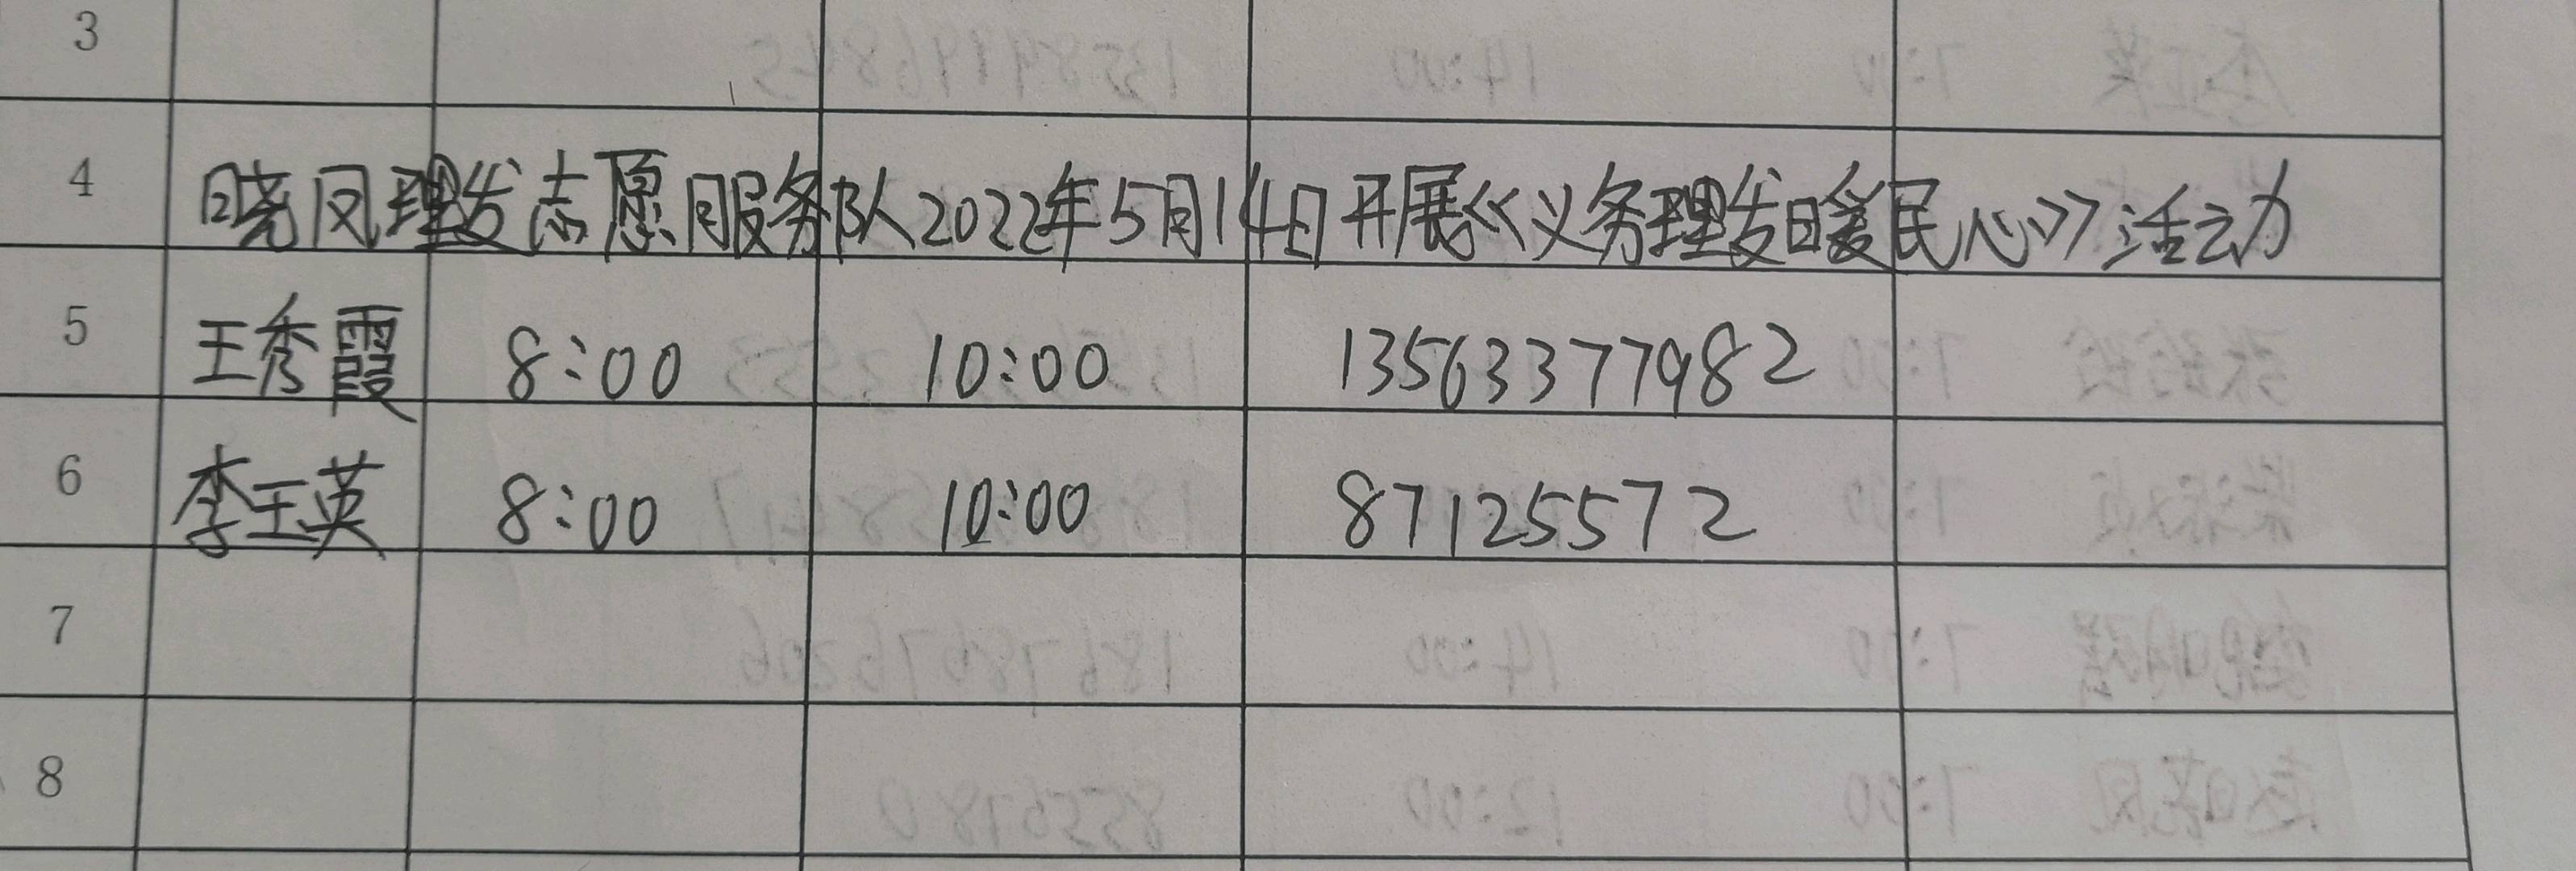 3
4 晓凤理发志愿服务队2022年5月14日开展《义务理发暖民心》活动
5 王秀霞 8:00 10:00 13563377982
6 李玉英 8:00 10:00 87125572
7
8